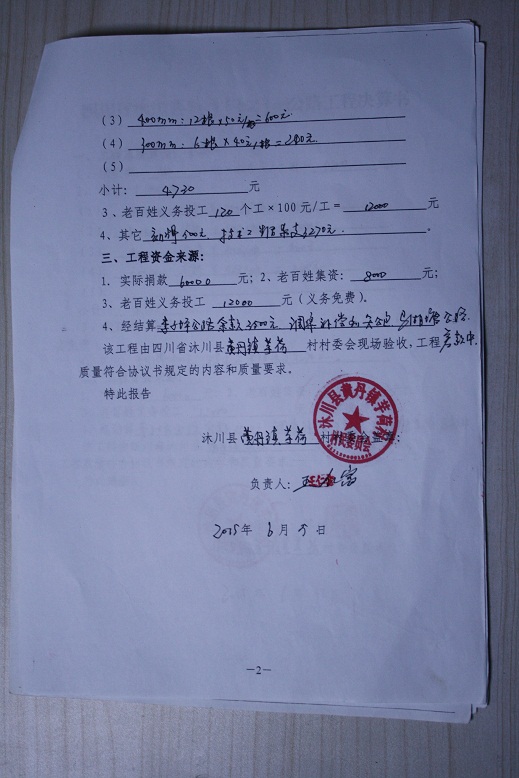 (3) 400mm:12根×50元/根=600元
(4) 300mm:6根×40元/根=240元
(5)
小计: 4730 元
3、老百姓义务投工 120 个工×100元/工= 12000 元
4、其它
三、工程资金来源:
1. 实际捐款 60000 元; 2、老百姓集资: 8000 元;
3、老百姓义务投工 12000 元(义务免费)。
4、经结算 余款2500元
该工程由四川省沐川县 黄丹镇芋荷 村村委会现场验收,工程
质量符合协议书规定的内容和质量要求。
特此报告
沐川县 黄丹镇芋荷 村村委会盖章;
沐川县黄丹镇芋荷村
村民委员会
负责人:
2015年 6月 5日
—2—